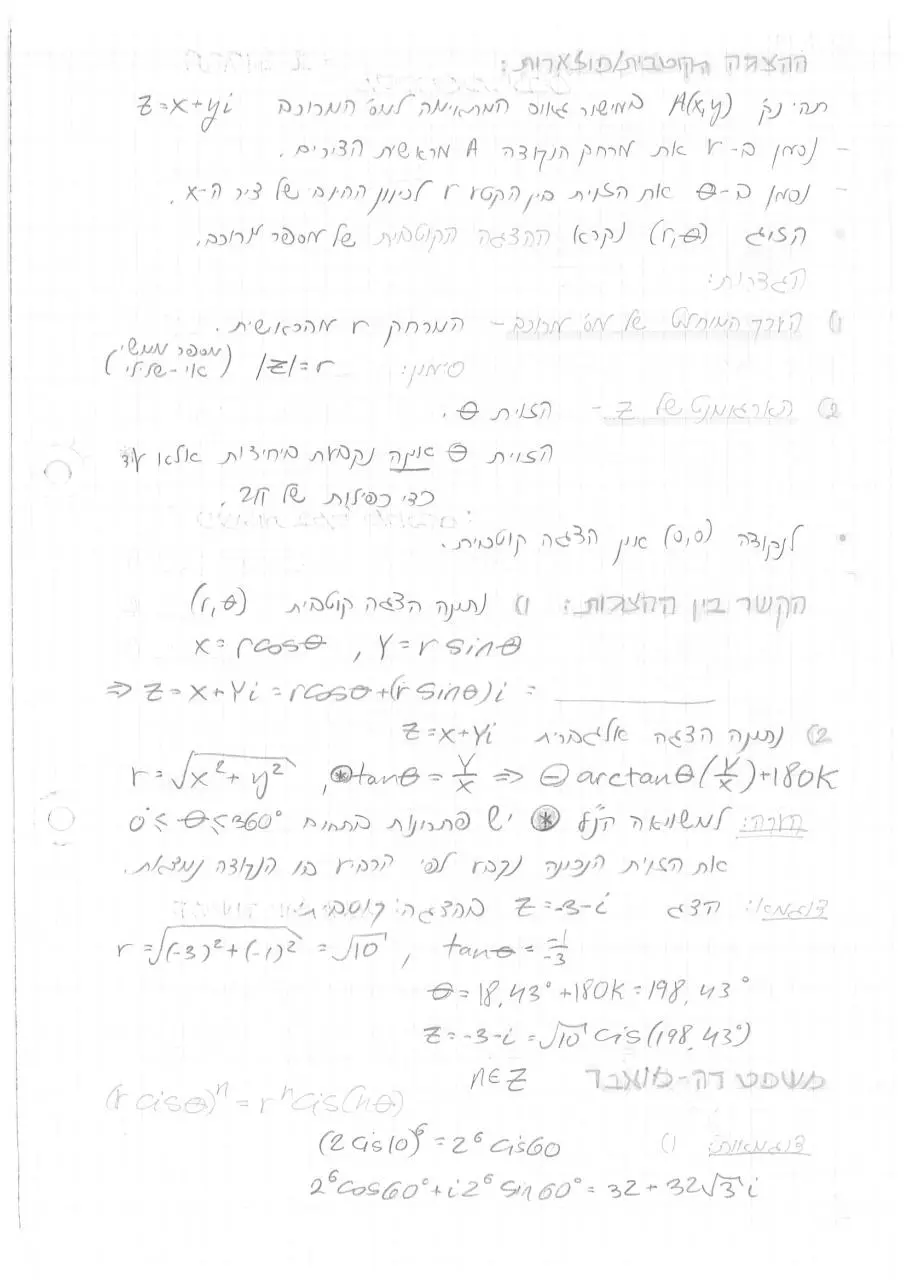 ההצגה הקוטבית/פולארית:
תהי נק' A(x,y) במישור גאוס המתאימה למס' המרוכב z=x+yi
- נסמן ב-r את מרחק הנקודה A מראשית הצירים.
- נסמן ב-θ את הזוית בין הקטע r לכיוון החיובי של ציר ה-x.
הזוג (r,θ) נקרא ההצגה הקוטבית של מספר מרוכב.
הגדרות:
1) הערך המוחלט של מס' מרוכב - המרחק r מהראשית.
סימון: |z|=r (מספר ממשי אי-שלילי)
2) הארגומנט של z - הזוית θ.
הזוית θ אינה נקבעת ביחידות אלא עד
כדי כפילות של 2π.
• לנקודה (0,0) אין הצגה קוטבית.
הקשר בין ההצגות: 1) נתונה הצגה קוטבית (r,θ)
x=rcosθ , y=r sinθ
⇒ z=x+yi=rcosθ+(r sinθ)i = ________
2) נתונה הצגה אלגברית z=x+yi
r=√(x²+y²) , ⊛tanθ = y/x ⇒ θ arctanθ(y/x)+180k
הערה: למשוואה הנ"ל ⊛ יש פתרונות בתחום 0°≤θ≤360°
את הזוית הנכונה נקבע לפי הרביע בו הנקודה נמצאת.
דוגמא: הצג z=-3-i בהצגה קוטבית
r=√((-3)²+(-1)²) = √10 , tanθ = -1/-3
θ=18.43°+180k=198.43°
z=-3-i=√10 cis(198.43°)
משפט דה-מואבר n∈Z
(r cisθ)ⁿ = rⁿcis(nθ)
דוגמאות: 1) (2cis10)⁶=2⁶cis60
2⁶cos60°+i2⁶sin60°=32+32√3i